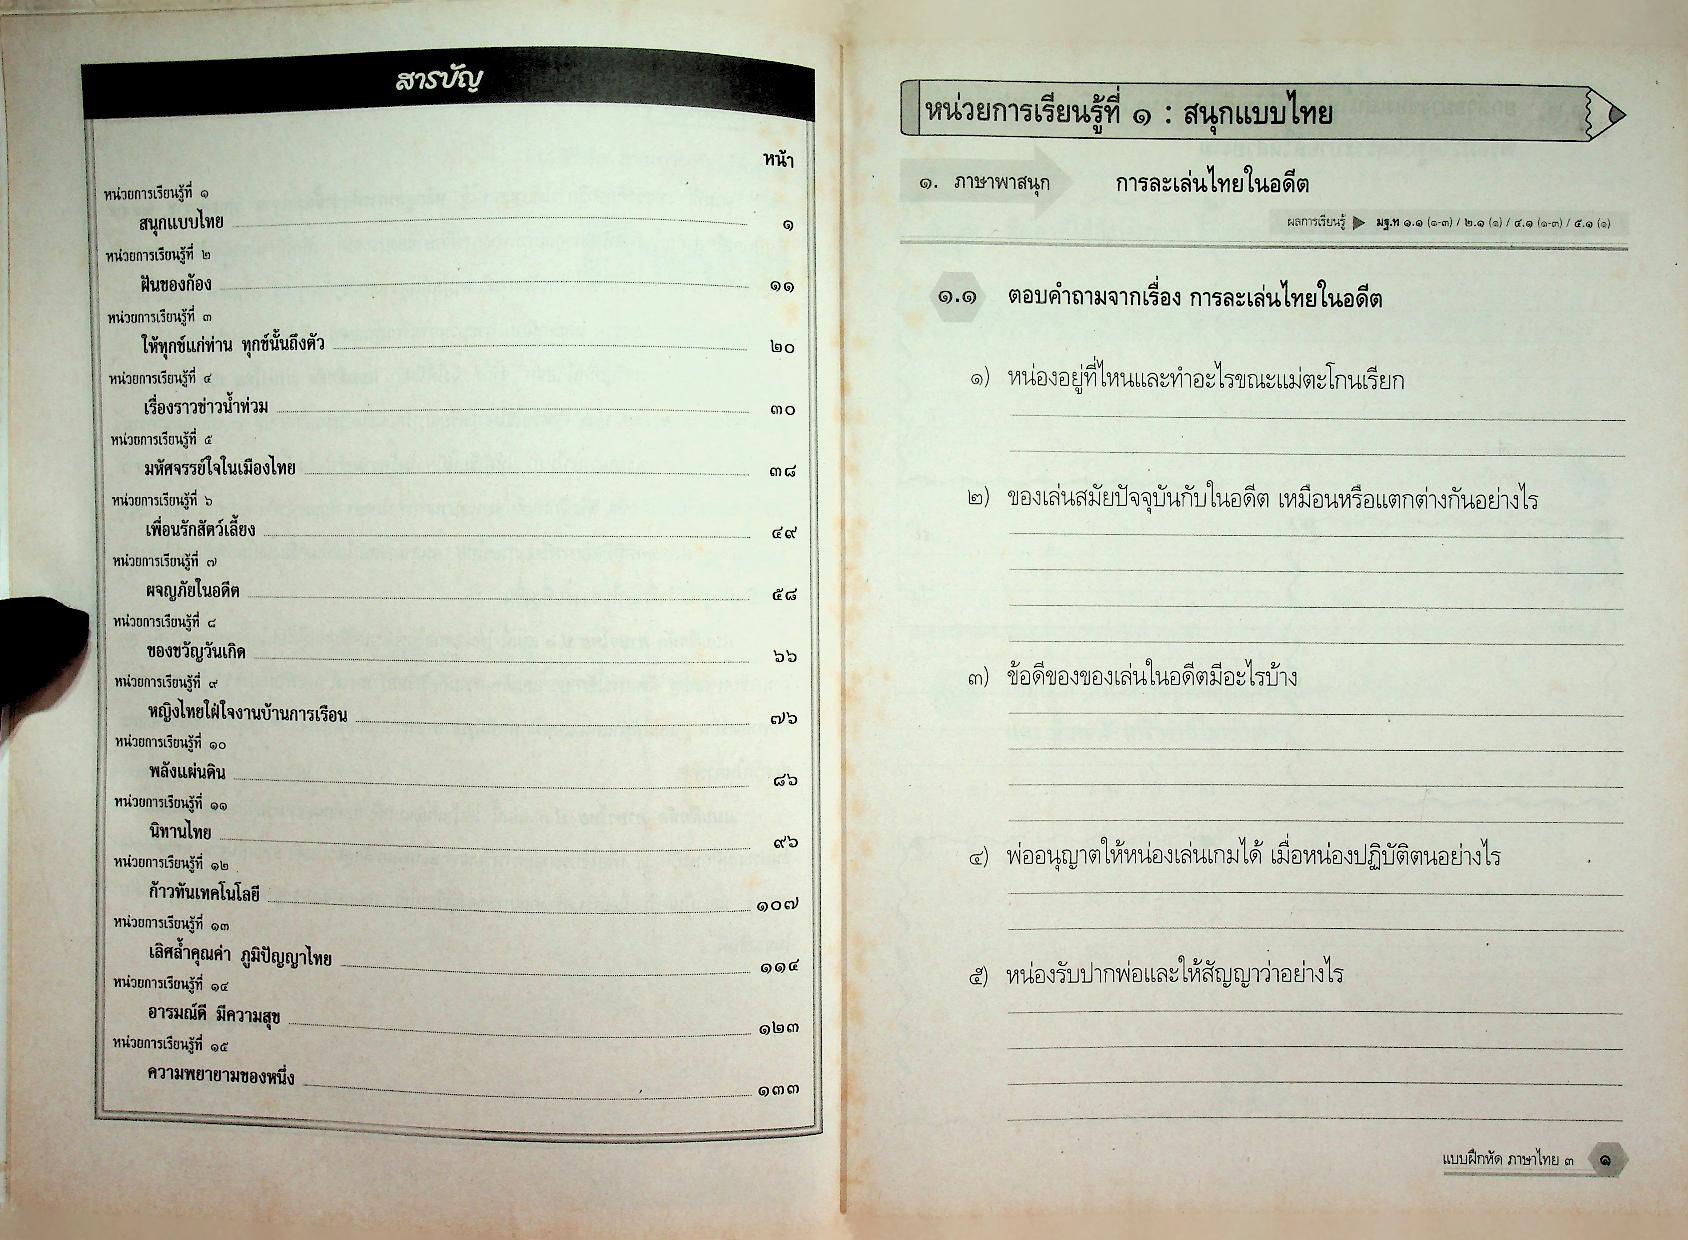 สารบัญ
หน้า
หน่วยการเรียนรู้ที่ ๑
สนุกแบบไทย ๑
หน่วยการเรียนรู้ที่ ๒
ฝันของก้อง ๑๑
หน่วยการเรียนรู้ที่ ๓
ให้ทุกข์แก่ท่าน ทุกข์นั้นถึงตัว ๒๐
หน่วยการเรียนรู้ที่ ๔
เรื่องราวข่าวน้ำท่วม ๓๐
หน่วยการเรียนรู้ที่ ๕
มหัศจรรย์ใจในเมืองไทย ๓๘
หน่วยการเรียนรู้ที่ ๖
เพื่อนรักสัตว์เลี้ยง ๔๙
หน่วยการเรียนรู้ที่ ๗
ผจญภัยในอดีต ๕๘
หน่วยการเรียนรู้ที่ ๘
ของขวัญวันเกิด ๖๖
หน่วยการเรียนรู้ที่ ๙
หญิงไทยใฝ่ใจงานบ้านการเรือน ๗๖
หน่วยการเรียนรู้ที่ ๑๐
พลังแผ่นดิน ๘๖
หน่วยการเรียนรู้ที่ ๑๑
นิทานไทย ๙๖
หน่วยการเรียนรู้ที่ ๑๒
ก้าวทันเทคโนโลยี ๑๐๗
หน่วยการเรียนรู้ที่ ๑๓
เลิศล้ำคุณค่า ภูมิปัญญาไทย ๑๑๔
หน่วยการเรียนรู้ที่ ๑๔
อารมณ์ดี มีความสุข ๑๒๓
หน่วยการเรียนรู้ที่ ๑๕
ความพยายามของหนึ่ง ๑๓๓
หน่วยการเรียนรู้ที่ ๑ : สนุกแบบไทย
๑. ภาษาพาสนุก การละเล่นไทยในอดีต
ผลการเรียนรู้ ▶ มฐ.ท ๑.๑ (๑-๓) / ๒.๑ (๑) / ๔.๑ (๑-๓) / ๕.๑ (๑)
๑.๑ ตอบคำถามจากเรื่อง การละเล่นไทยในอดีต
๑) หน่องอยู่ที่ไหนและทำอะไรขณะแม่ตะโกนเรียก
๒) ของเล่นสมัยปัจจุบันกับในอดีต เหมือนหรือแตกต่างกันอย่างไร
๓) ข้อดีของของเล่นในอดีตมีอะไรบ้าง
๔) พ่ออนุญาตให้หน่องเล่นเกมได้ เมื่อหน่องปฏิบัติตนอย่างไร
๕) หน่องรับปากพ่อและให้สัญญาว่าอย่างไร
แบบฝึกหัด ภาษาไทย ๓ ๑